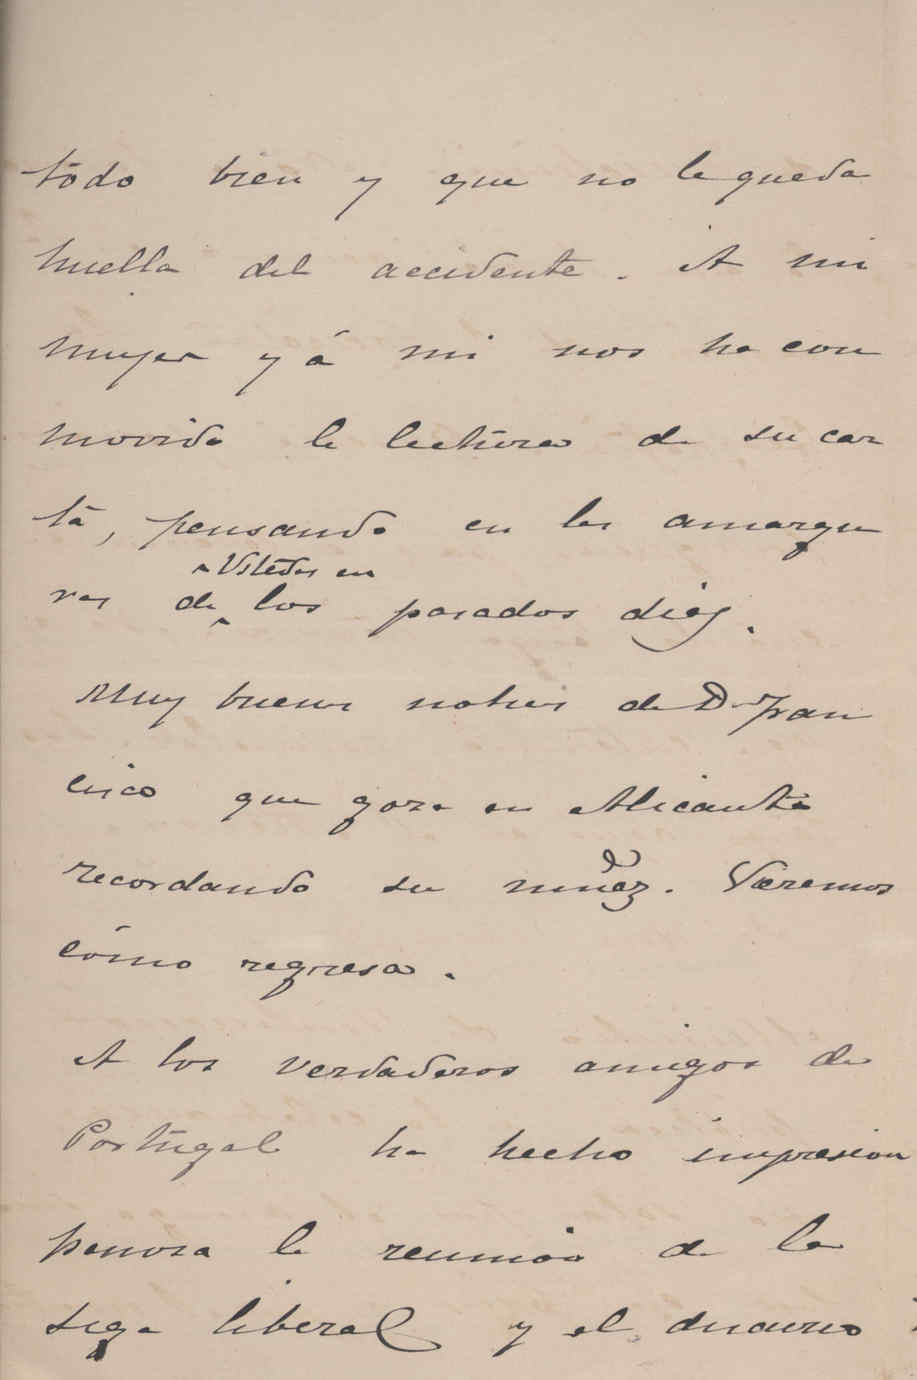 todo bien y que no le queda
huella del accidente. A mi
mujer y á mi nos ha con
movido la lectura de su car
ta, pensando en las amargu
a Ustedes en
ras de los pasados dias.
Muy buenas noticias de Dn Fran
cisco que goza en Alicante
recordando su niñez. Veremos
cómo regresa.
A los verdaderos amigos de
Portugal ha hecho impresion
penosa la reunion de la
liga liberal y el discurso